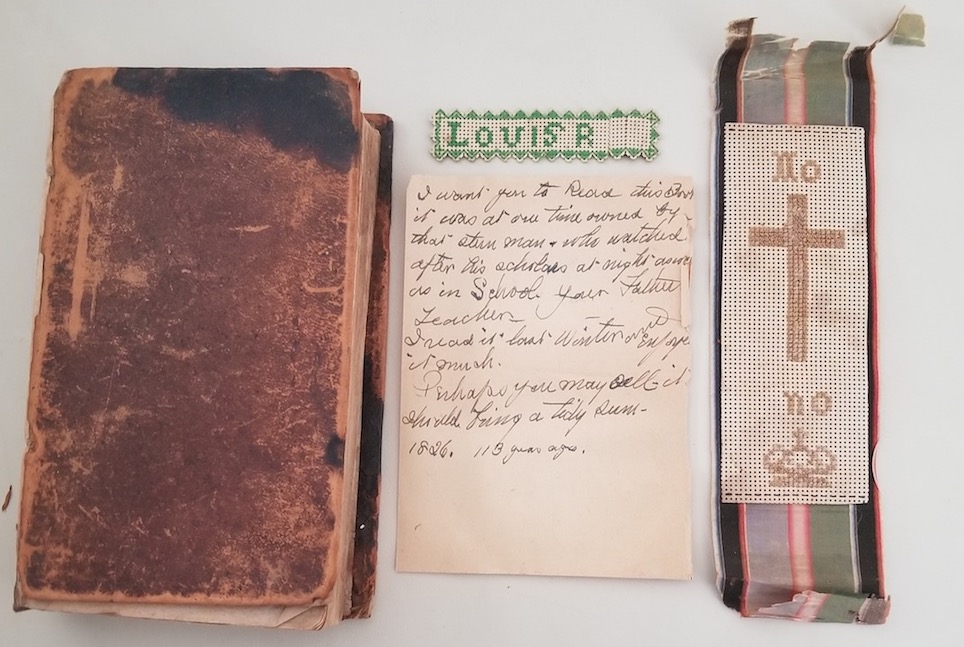 LOUISA
I want you to Read this Book
it was at one time owned by
that stern man - who watched
after his scholars at night as well
as in School. your Father
Teacher
I read it last Winter and Enjoye
it much.
Perhaps you may sell it
should bring a tidy sum -
1826. 113 years ago.
No
no